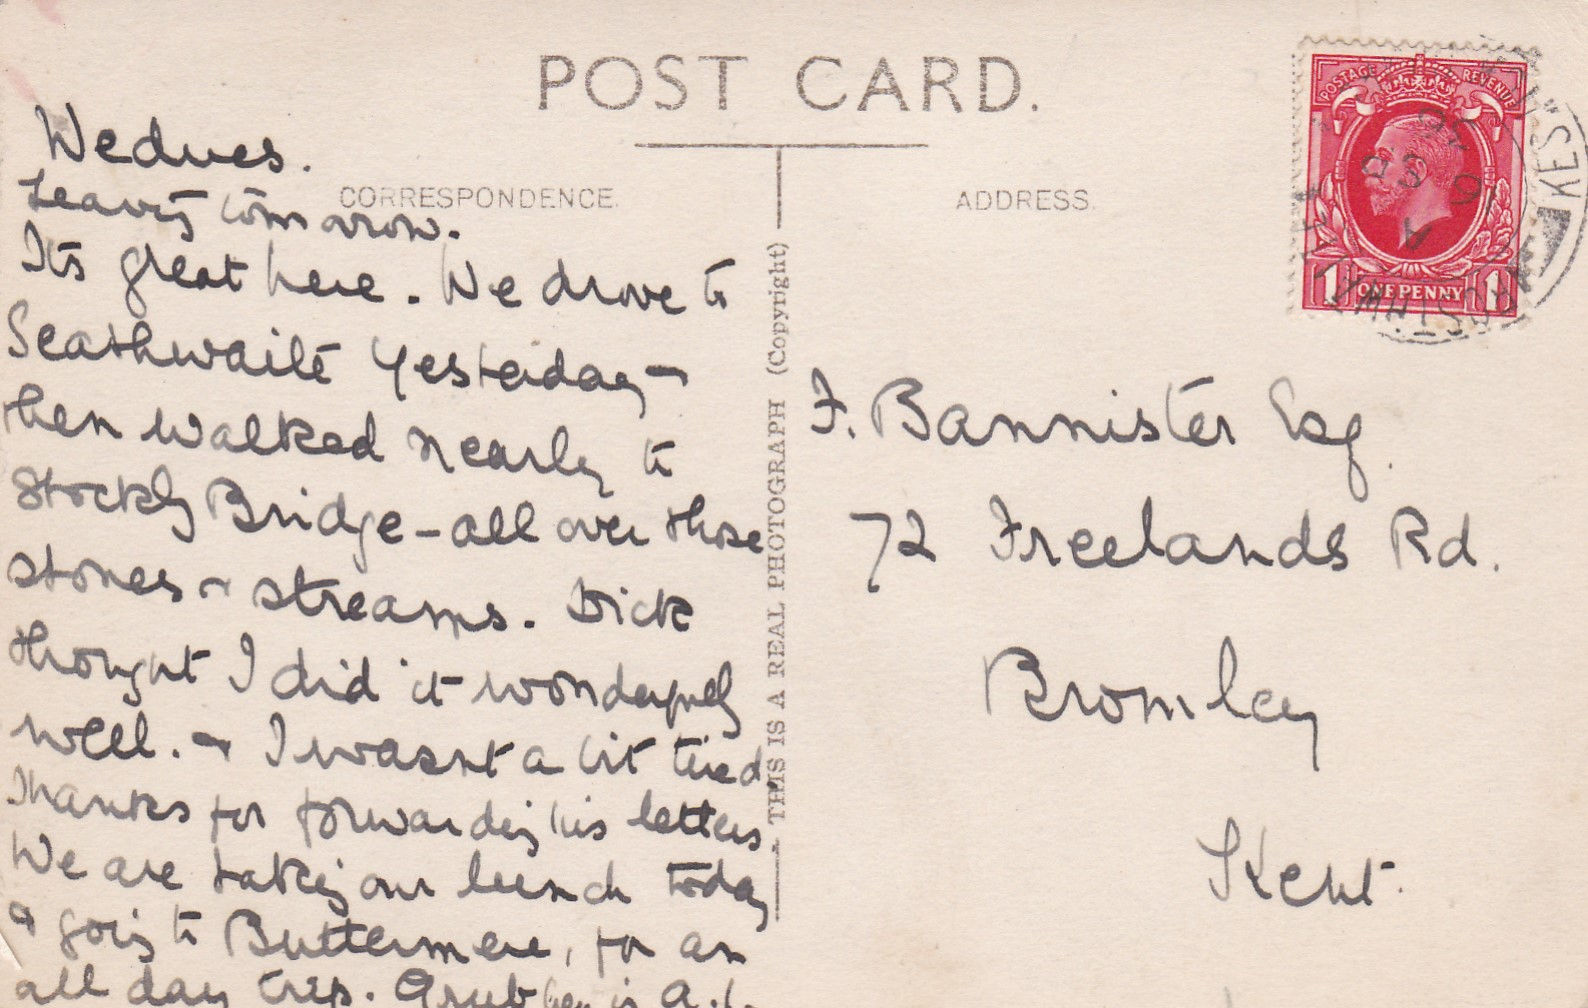 POST CARD.
CORRESPONDENCE.
ADDRESS.
Wednes.
Leaving tomorrow.
Its great here. We drove to
Seathwaite yesterday &
then walked nearly to
Stockly Bridge - all over those
stones & streams. Dick
thought I did it wonderfully
well. & I wasnt a bit tired
Thanks for forwarding his letters.
We are taking our lunch today
& going to Buttermere, for an
all day trip. Grub here is A.1.
THIS IS A REAL PHOTOGRAPH (Copyright)
POSTAGE REVENUE
1 ONE PENNY 1
KESWICK
F. Bannister Esq.
72 Freelands Rd.
Bromley
Kent.